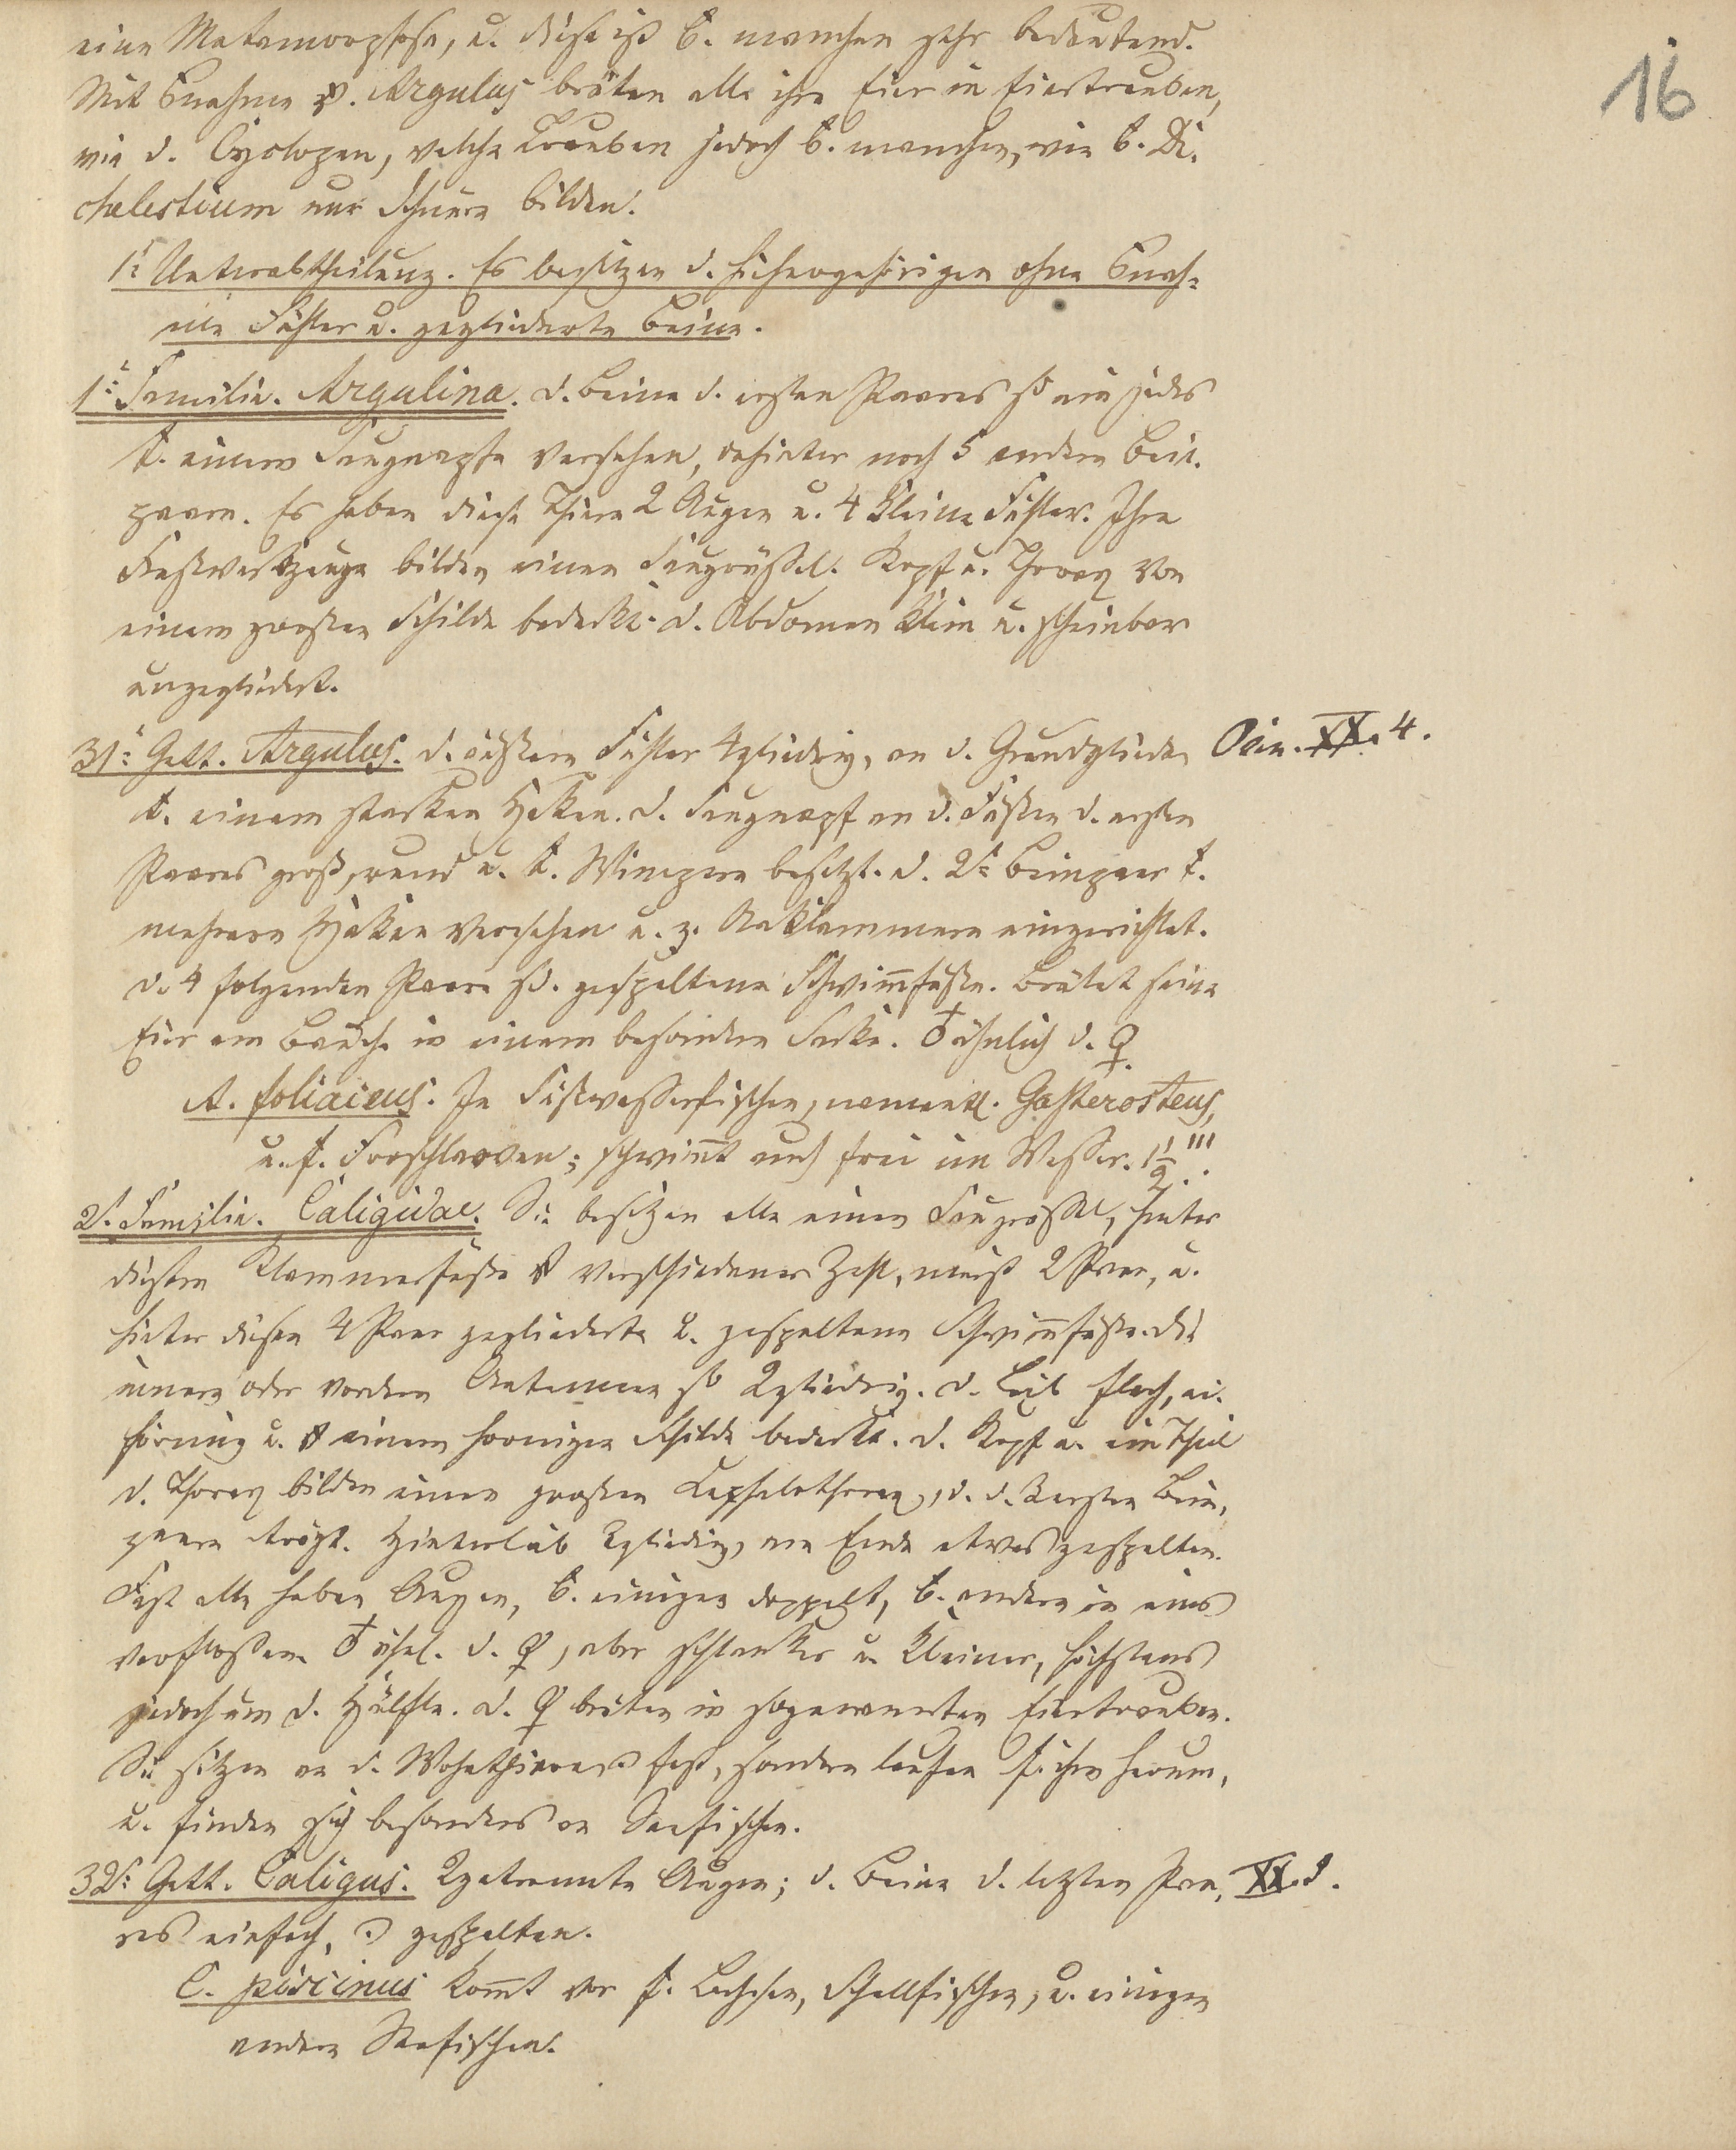 16
eine Metamorphose, u. diese ist b. manchen sehr bedeutend.
Mit Ausnahme v. Argulus brüten alle ihre Eier in Eiertrauben,
wie d. Cyclopen, welche Trauben jedoch b. manchen, wie b. Di-
chelestium nur Schnüre bilden.
1e Unterabtheilung. Es besitzen d. hierhergehörigen ohne Ausnah-
me Fühler u. gegliederte Beine.
1e Familie. Argulina. d. Beine d. ersten Paares sd ein jedes
m. einem Saugnapfe versehen, dahinter noch 5 andere Bein-
paare. Es haben diese Thiere 2 Augen u. 4 kleine Fühler. Ihre
Freßwerkzeuge bilden einen Saugrüssel. Kopf u. Thorax von
einem großen Schilde bedeckt. d. Abdomen klein u. scheinbar
ungegliedert.
31e Gatt. Argulus. d. äußern Fühler 4gliedrig, an d. Grundgliede Oin. XX. 4.
m. einem starken Haken. d. Saugnapf an d. Füßen d. ersten
Paares groß, rund u. m. Wimpern besetzt. d. 2e Beinpaar m.
mehrern Haken versehen u. z. Anklammern eingerichtet.
d. 4 folgenden Paare sd. gespaltene Schwimmfüße. Brütet seine
Eier am Bauche in einem besondern Sacke. ♂ ähnlich d. ♀.
A. foliaceus. In Süßwasserfischen, namentl. Gasterosteus,
u. a. Froschlarven; schwimmt auch frei im Wasser. 1½'''.
2e Familie. Caligidae. Sie besitzen alle einen Saugrüssel, hinter
diesem Klammerfüße v verschiedener Zahl, meist 2 Paar, u.
hinter diesen 4 Paar gegliederte u. gespaltene Schwimmfüße. die
innern oder vordern Antennen sd 2gliedrig. d. Leib flach, ei-
förmig u. v einem hornigen Schilde bedeckt. d. Kopf u. ein Theil
d. Thorax bilden einen großen Cephalothorax, d. d. ersten Bein-
paare trägt. Hinterleib 2gliedrig, am Ende etwas gespalten.
Fast alle haben Augen, b. einigen doppelt, b. andern in eins
verflossen. ♂ ähnl. d. ♀, aber schlanker u. kleiner, höchstens
jedoch um d. Hälfte. d. ♀ brüten in sogenannten Eiertrauben.
Sie sitzen an d. Wohnthieren fest, sondern laufen herum,
u. finden sich besonders an Seefischen.
32e Gatt. Caligus. 2 getrennte Augen; d. Beine d. letzten Paa- XX. 1.
res einfach, gespalten.
C. piscinus kommt vor a. Lachsen, Schellfischen, u. einigen
andern Seefischen.